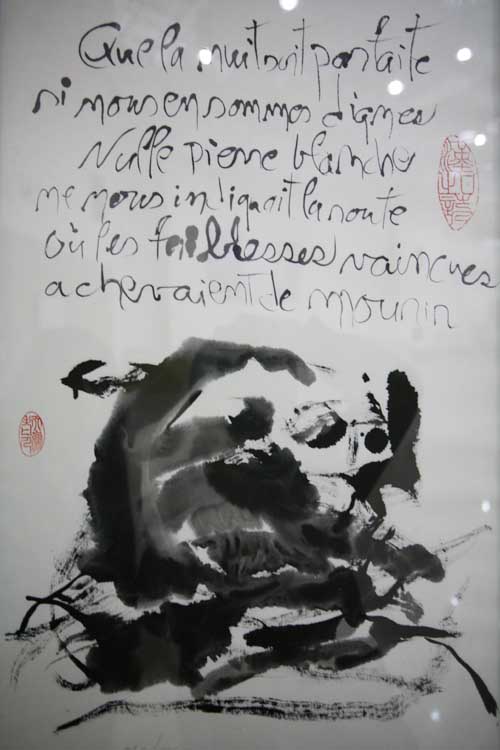 Que la nuit soit parfaite
si nous en sommes dignes
Nulle pierre blanche
ne nous indiquait la route
Où les faiblesses vaincues
achevaient de mourir